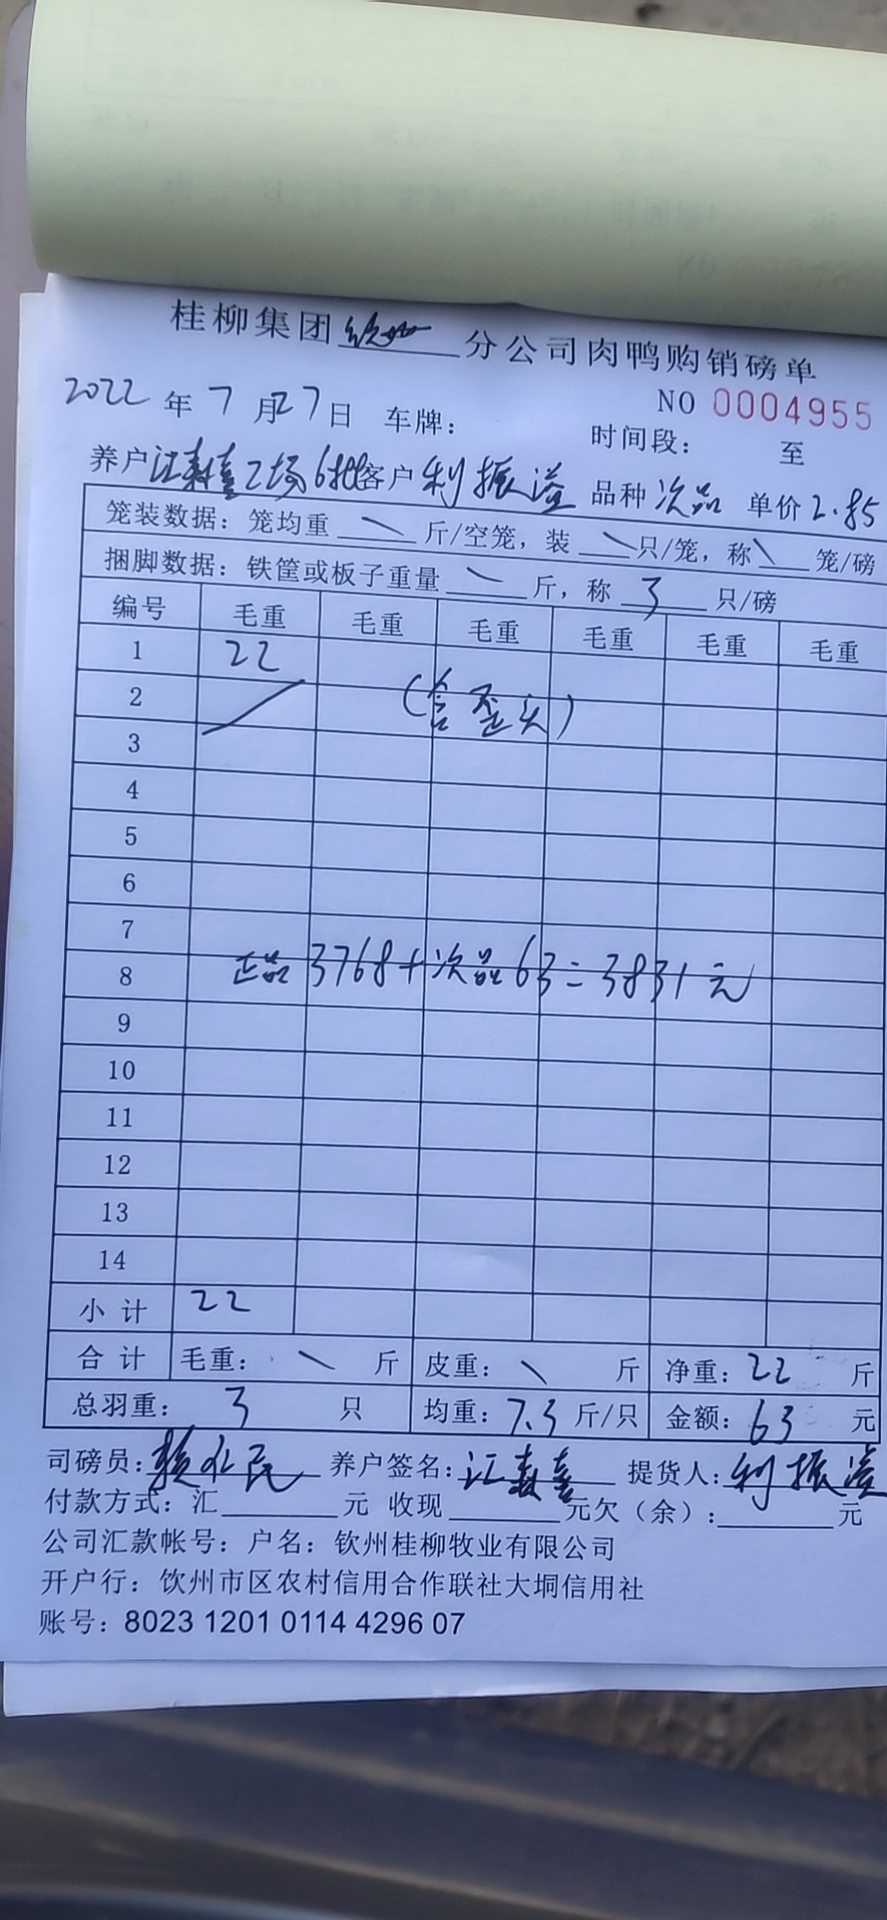 桂柳集团钦州分公司肉鸭购销磅单
NO 0004955
2022年7月27日 车牌： 时间段： 至
养户 江森喜2场6批 客户 利振溢 品种 次品 单价 2.85
笼装数据：笼均重 \ 斤/空笼，装 \ 只/笼，称 \ 笼/磅
捆脚数据：铁筐或板子重量 \ 斤，称 3 只/磅
编号 毛重 毛重 毛重 毛重 毛重 毛重
1 22
2 (含歪头)
3
4
5
6
7
8 正品3768+次品63=3831元
9
10
11
12
13
14
小计 22
合计 毛重： \ 斤 皮重： \ 斤 净重：22 斤
总羽重： 3 只 均重：7.3 斤/只 金额：63 元
司磅员： 养户签名：江森喜 提货人：利振溢
付款方式：汇 元 收现 元欠（余）： 元
公司汇款帐号：户名：钦州桂柳牧业有限公司
开户行：钦州市区农村信用合作联社大垌信用社
账号：8023 1201 0114 4296 07